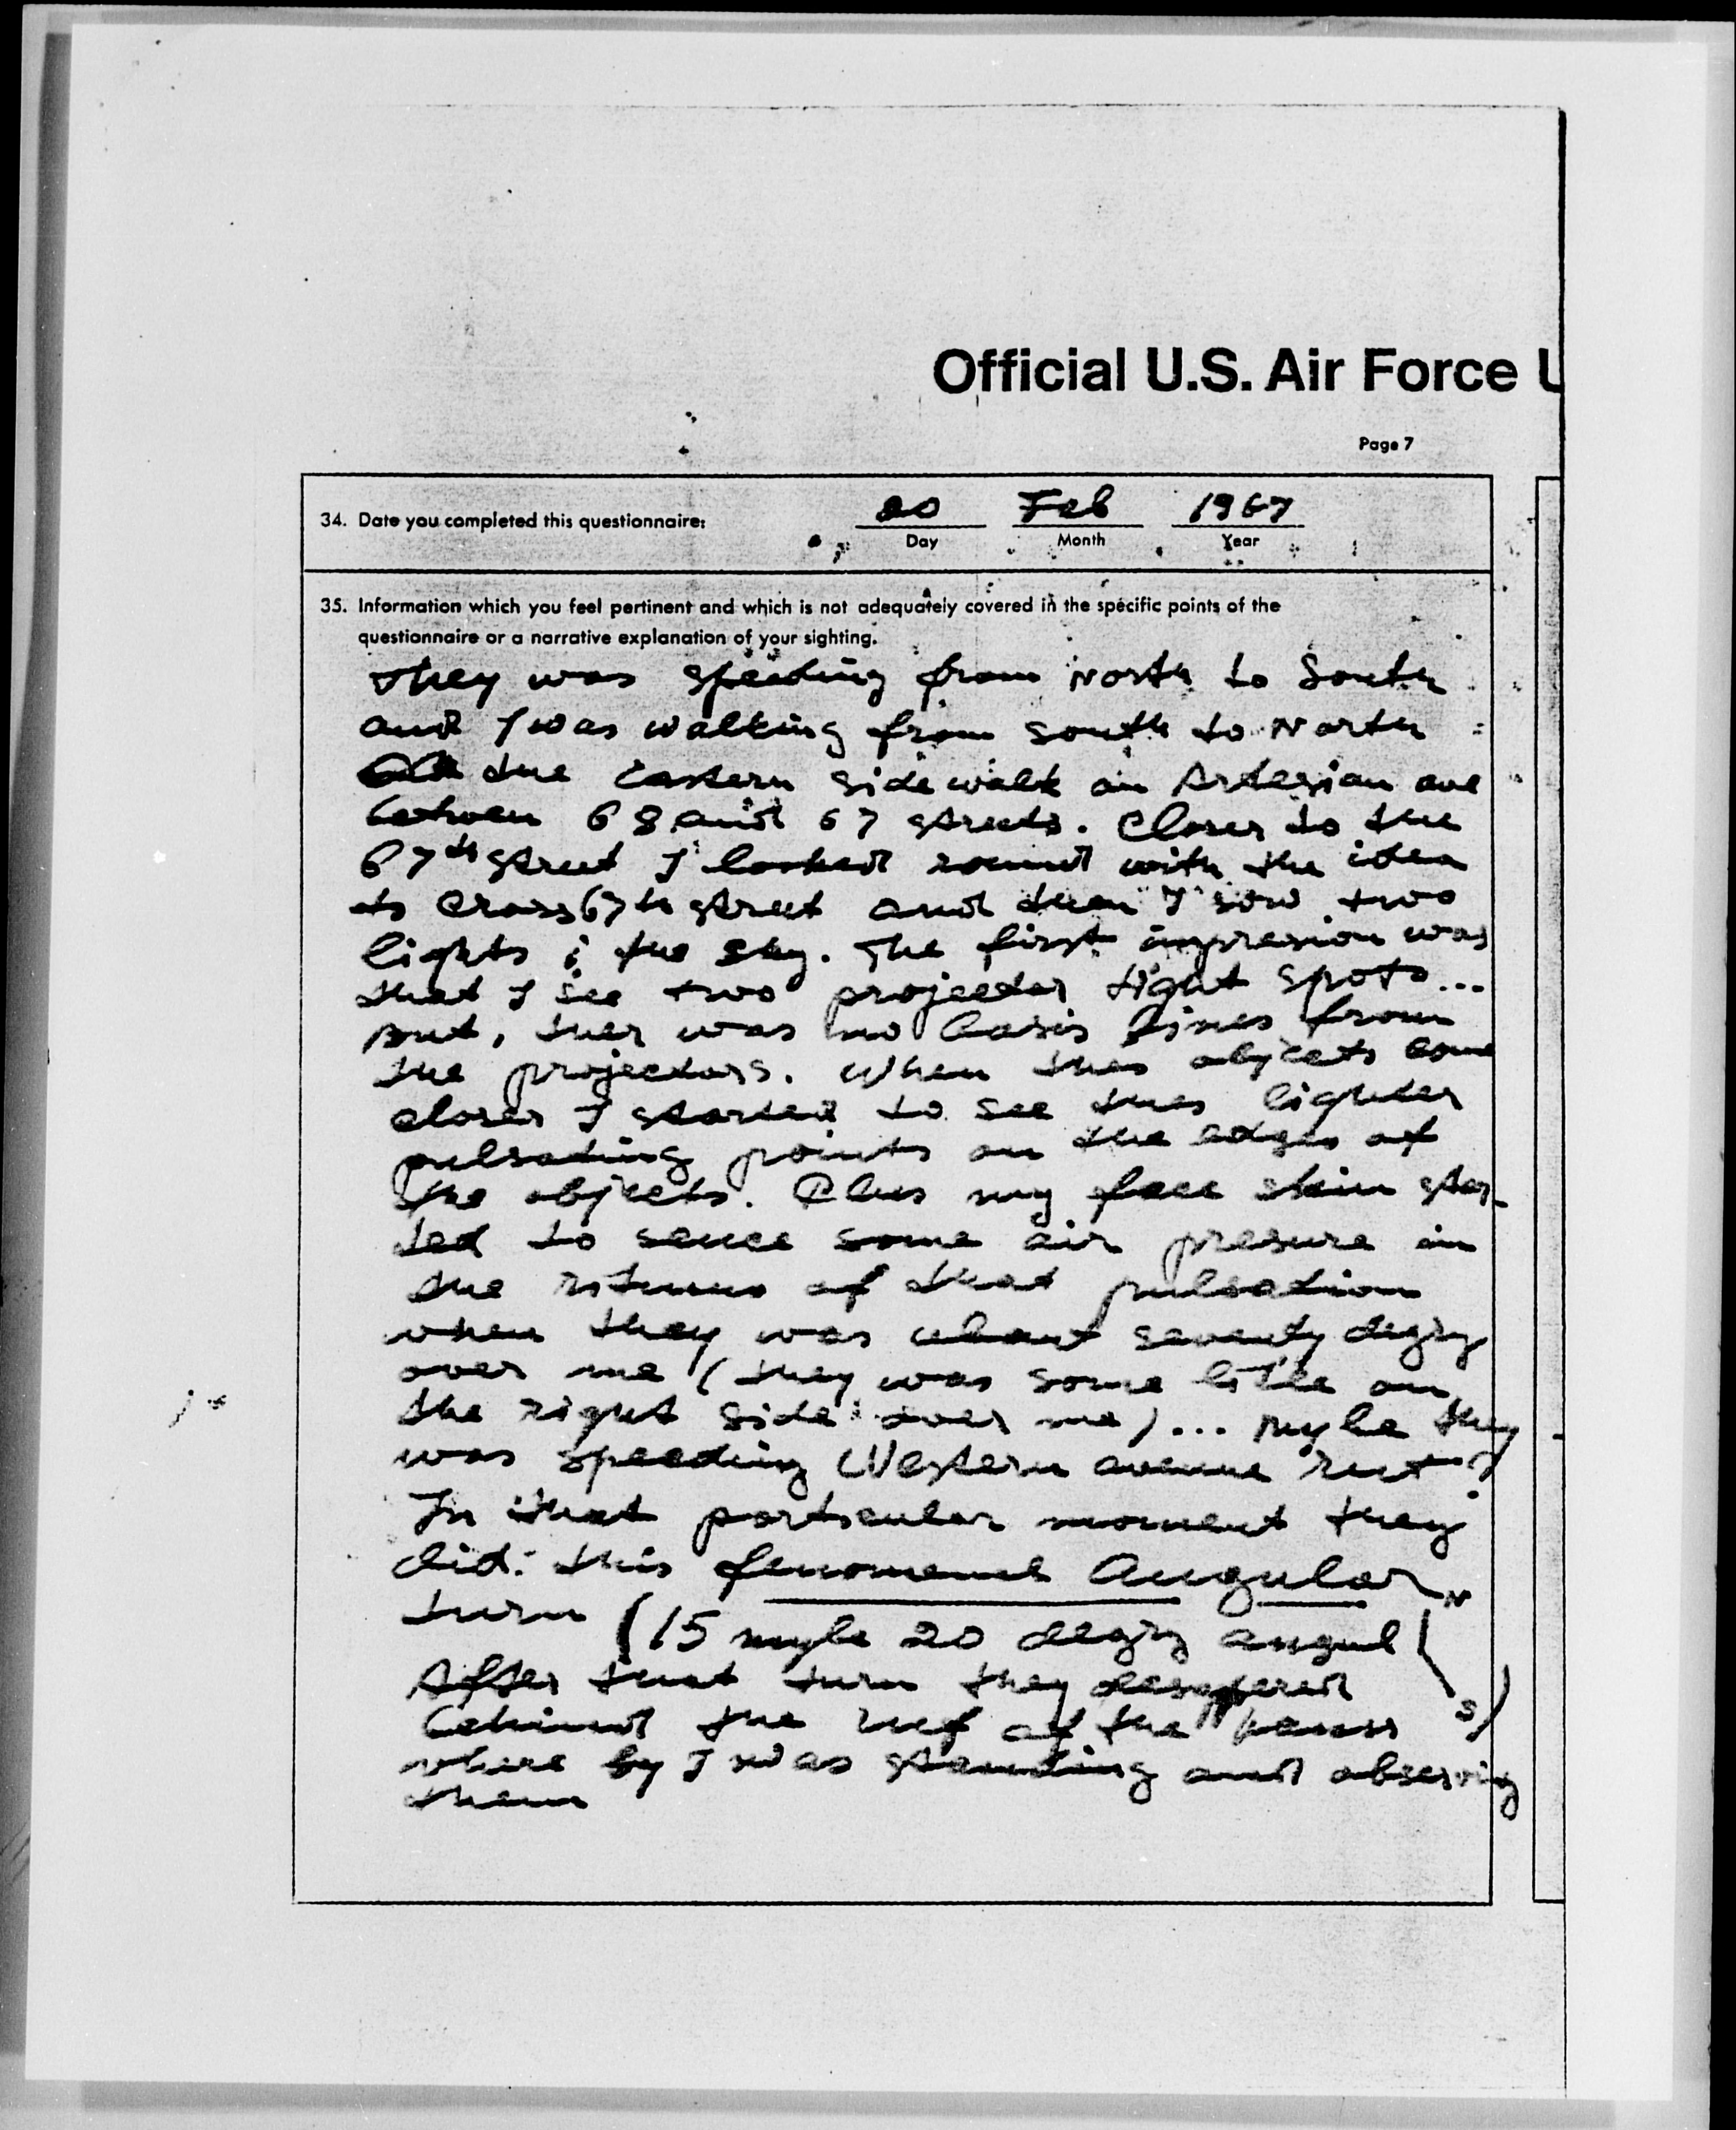 Official U.S. Air Force U
Page 7
34. Date you completed this questionnaire:
20 Feb 1967
Day Month Year
35. Information which you feel pertinent and which is not adequately covered in the specific points of the
questionnaire or a narrative explanation of your sighting.
They was speeding from North to South
and I was walking from south to North
the Eastern sidewalk on Artesian ave
between 68 and 67 streets. Closer to the
67th street I looked round with the idea
to cross 67th street and then I sow two
lights i the sky. The first impresion was
that I see two projector light spots...
But, ther was no basis lines from
the projectors. When thes objects come
closer I started to see thes lighter
pulsating points on the edges of
the objects. Plus my face skin star-
ted to sence some air presure in
the ritmus of that pulsation
when they was about seventy degry
over me (they was some little on
the right side over me)... mybe they
was speeding Western avenue rut?
In that porticular moment they
did: this fenomenal Angular
turn (15 mybe 20 degry angul N
After that turn they desappered S)
behind the ruf of the house
where by I was standing and observing
them